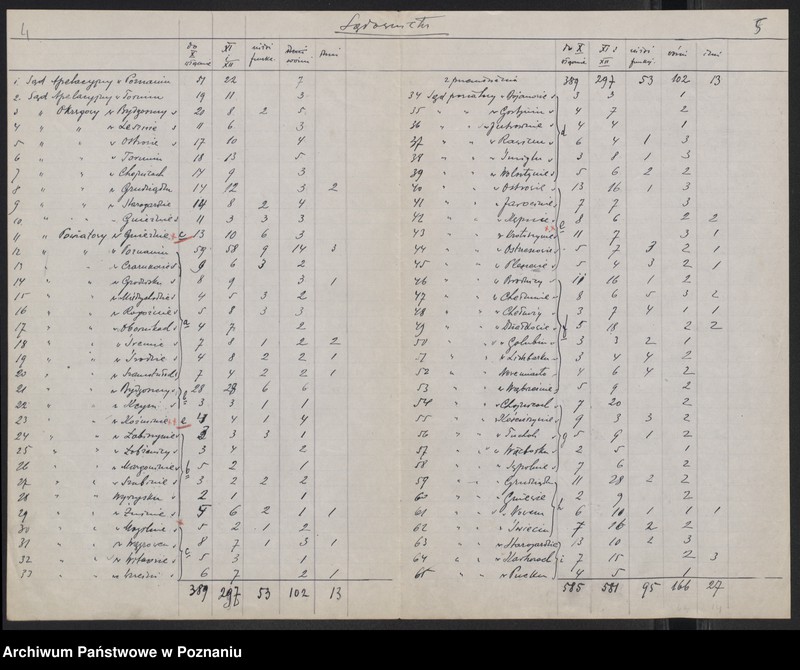 4
Sądownictwo
5
do X
XI i XII
1. Sąd Apelacyjny w Poznaniu 51 22 7
2. Sąd Apelacyjny w Toruniu 19 11 3
3 " Okręgowy w Bydgoszczy 20 8 2 5
4 " " w Lesznie 11 6 3
5 " " w Ostrowie 17 10 4
6 " " w Toruniu 18 13 5
7 " " w Chojnicach 14 9 3
8 " " w Grudziądzu 14 12 3 2
9 " " w Starogardzie 14 8 2 4
10. " " w Gnieźnie 11 3 3 3
11 " Powiatowy w Gnieźnie c 13 10 6 3
12 " " w Poznaniu 59 58 9 14 3
13 " " w Czarnkowie 9 6 3 2
14 " " w Grodzisku 8 9 3 1
15 " " w Międzychodzie 4 5 3 2
16 " " w Rogoźnie 5 8 3 3
17 " " w Obornikach 4 7 2
18 " " w Śremie 7 8 1 2 2
19 " " w Środzie 4 8 2 2 1
20 " " w Szamotułach 7 4 2 2 1
21 " " w Bydgoszczy 28 28 6 6
22 " " w Kcyni 3 3 1 1
23 " " w Koźminie c 4 1 4
24 " " w Łobżenicy 3 3 1
25 " " 3 4 2
26 " " w Margoninie 5 2 1
27 " " w Szubinie 3 2 2 2
28 " " Wyrzysku 2 1 1
29 " " w Żninie 5 6 2 1 1
30 " " w Mogilnie 5 2 1 2
31 " " w Wągrowcu 8 7 1 3 1
32 " " w Witkowie 5 3 1
33 " " w Wrześni 6 7 2 1
389 297 53 102 13
z przeniesienia 389 297 53 102 13
34 Sąd powiatowy w Bojanowie 3 3 1
35 " " w Gostyniu 4 7 2
36 " " w Jutrosinie 4 4 1
37 " " w Rawiczu 6 4 1 3
38 " " w Śmiglu 3 8 1 3
39 " " w Wolsztynie 5 6 2 2
40 " " w Ostrowie 13 16 1 3
41 " " w Jarocinie 7 7 3
42 " " w Kępnie 8 6 2 2
43 " " w Krotoszynie 11 7 3 1
44 " " w Ostrzeszowie 5 7 3 2 1
45 " " w Pleszewie 5 4 3 2 1
46 " " w Brodnicy 11 16 1 2
47 " " w Chełmnie 8 6 5 3 2
48 " " w Chełmży 3 7 4 1 1
49 " " w Działdowie 5 18 2 2
50 " " w Golubiu 3 3 2 1
" " w Lidzbarku 3 4 4 2
" " w Nowemiasto 4 6 4 2
53 " " w Wąbrzeźnie 5 9 2
54 " " w Chojnicach 7 20 2
55 " " w Kościerzynie 9 3 3 2
56 " " w Tucholi 5 9 1 2
57 " " w Więcborku 2 5 1
58 " " w Sępólnie 7 6 2
59 " " w Grudziądzu 11 28 2 2
60 " " w Gniewie 2 9 2
61 " " w Nowem 6 10 1 1 1
62 " " w Świeciu 7 16 2 2
63 " " w Starogardzie 13 10 2 3
64 " " w Kartuzach 7 15 2 3
65 " " w Pucku 4 5 1
585 581 95 166 27
Archiwum Państwowe w Poznaniu